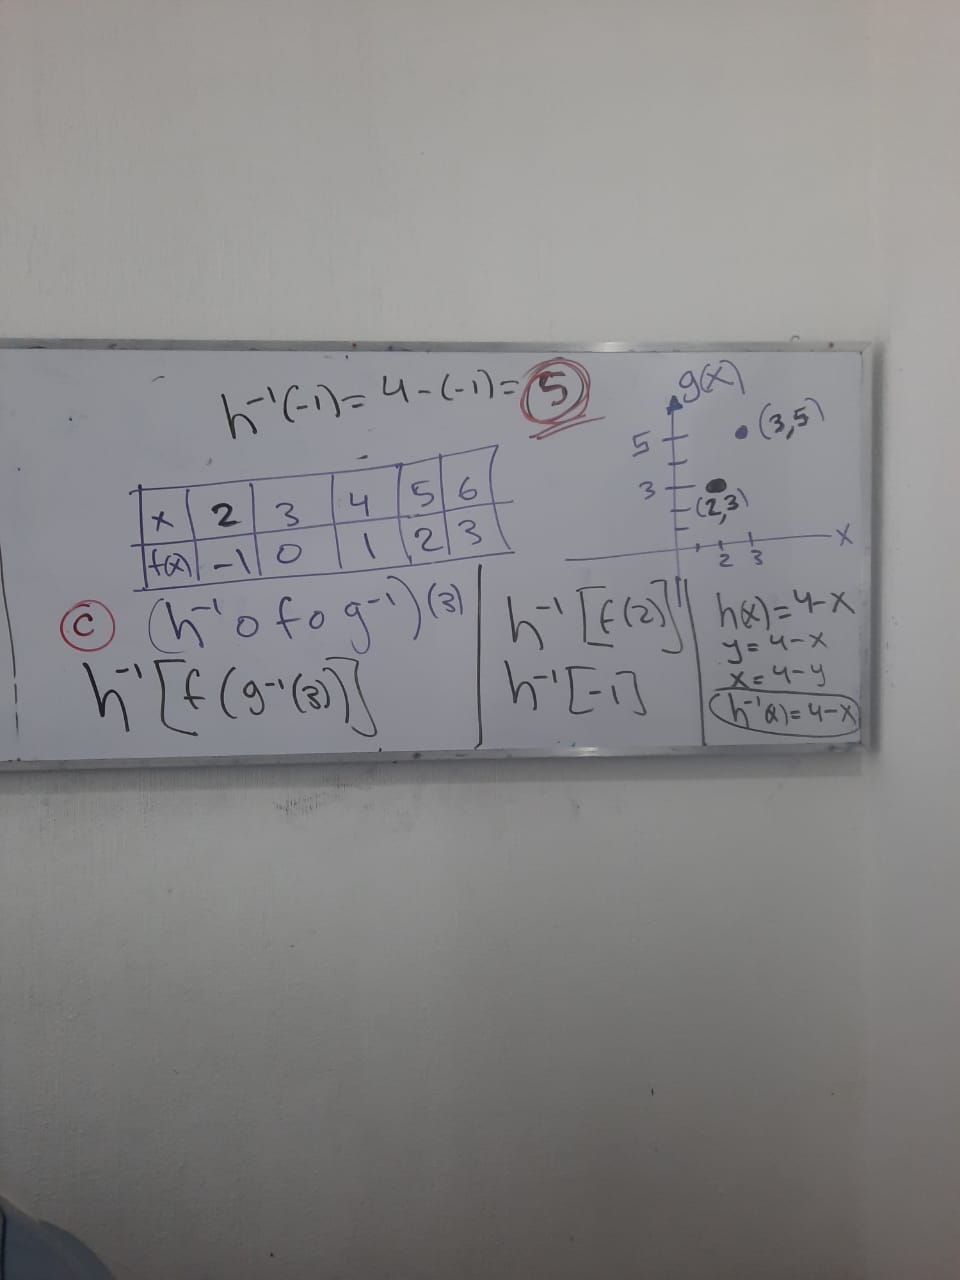 h⁻¹(-1)= 4-(-1)= 5
x 2 3 4 5 6
f(x) -1 0 1 2 3
g(x)
5
(3,5)
3
(2,3)
x
2 3
C (h⁻¹ o f o g⁻¹)(3)
h⁻¹[f(g⁻¹(3)]
h⁻¹[f(2)]
h⁻¹[-1]
h(x)=4-x
y=4-x
x=4-y
h⁻¹(x)=4-x